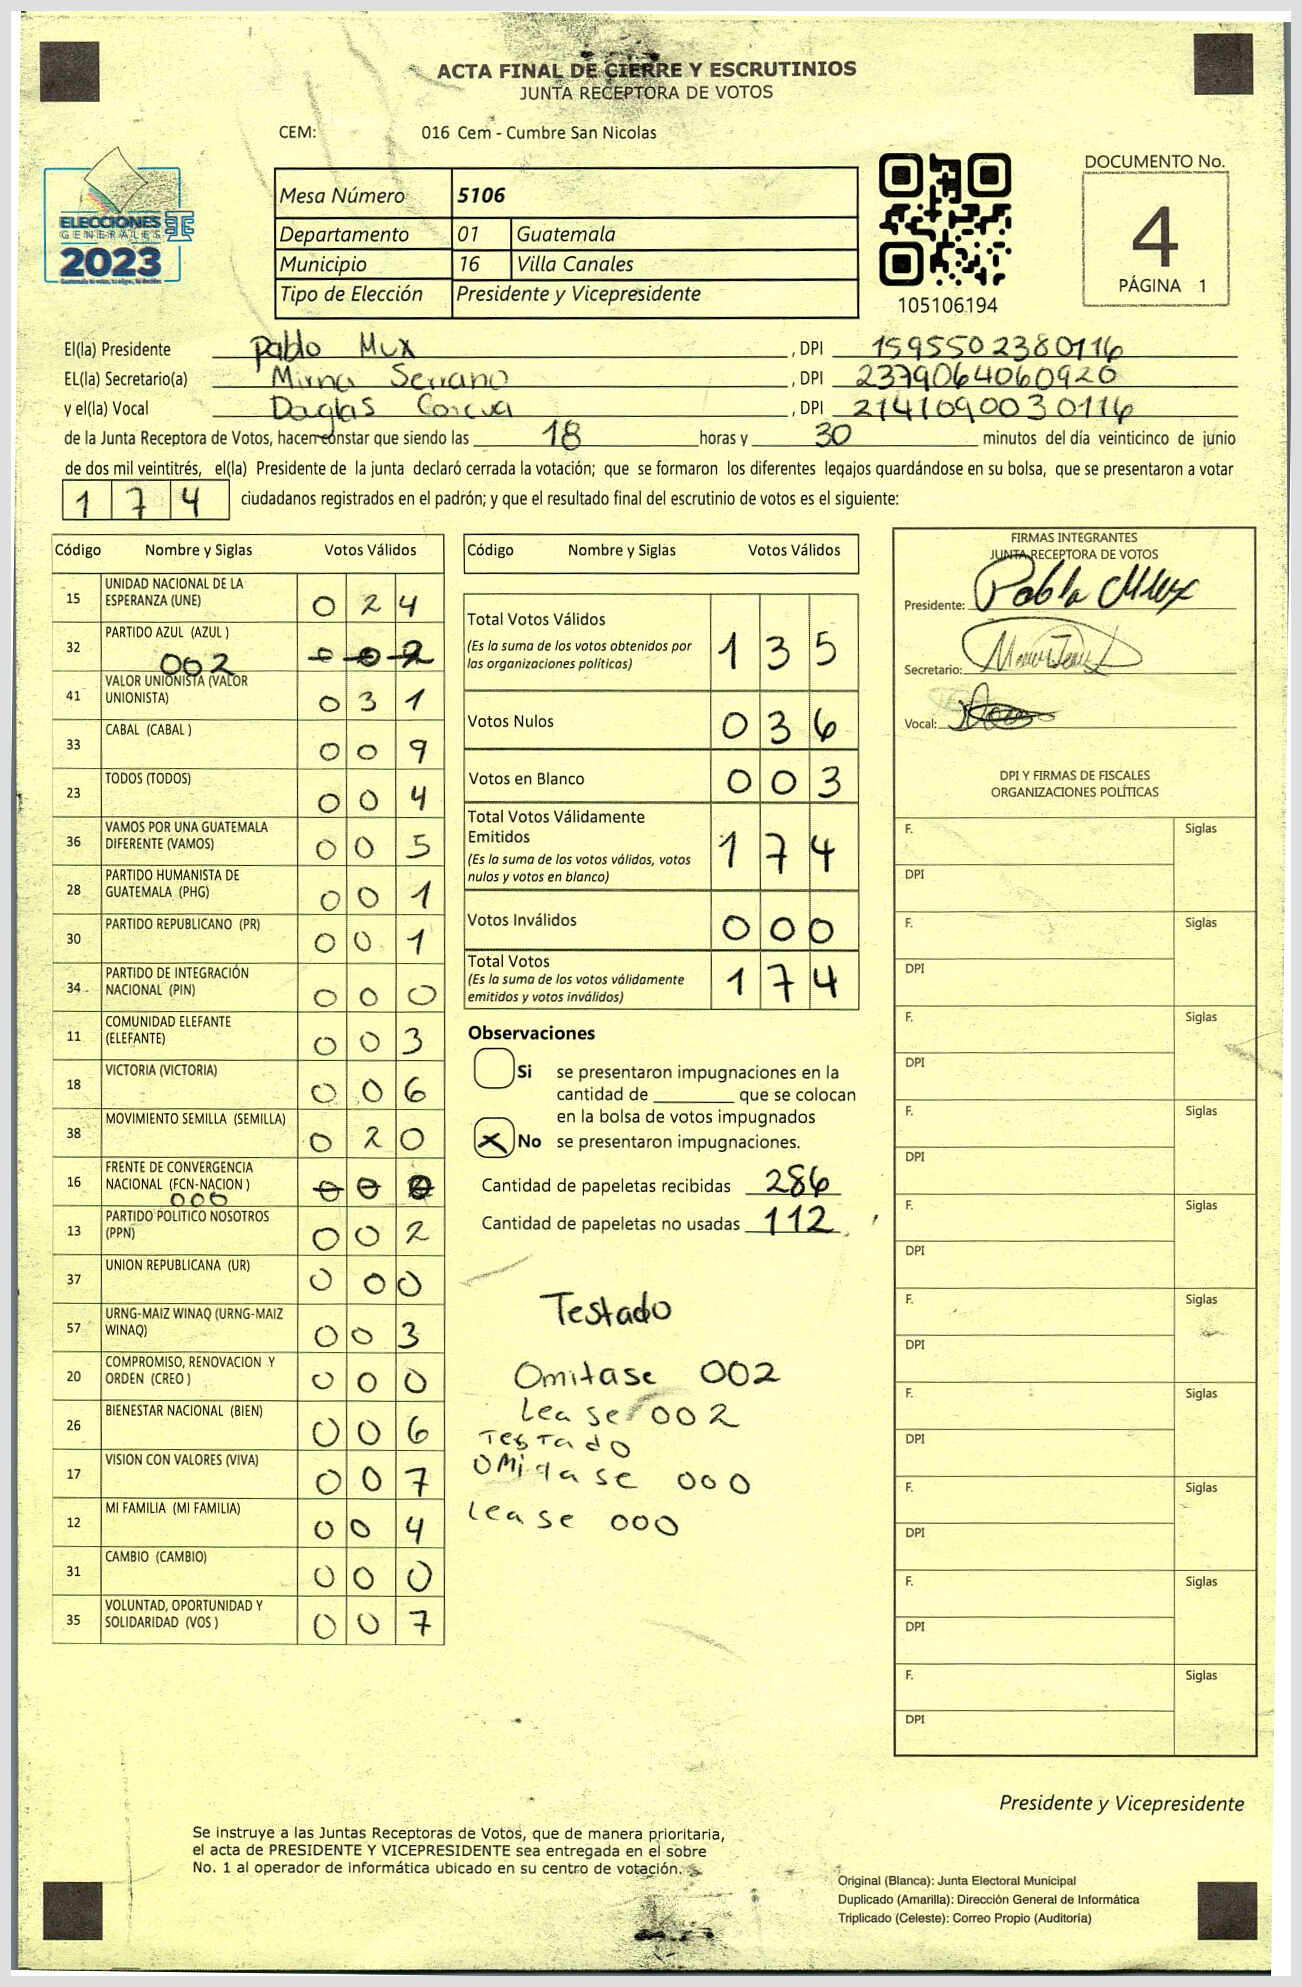 ACTA FINAL DE CIERRE Y ESCRUTINIOS
JUNTA RECEPTORA DE VOTOS
CEM: 016 Cem - Cumbre San Nicolas
ELECCIONES
GENERALES
2023
Mesa Número 5106
Departamento 01 Guatemala
Municipio 16 Villa Canales
Tipo de Elección Presidente y Vicepresidente
105106194
DOCUMENTO No.
4
PÁGINA 1
El(la) Presidente Pablo Mux , DPI 1595502380116
EL(la) Secretario(a) Mirna Serrano , DPI 2379064060920
y el(la) Vocal Daglas , DPI 2141090030116
de la Junta Receptora de Votos, hacen constar que siendo las 18 horas y 30 minutos del día veinticinco de junio
de dos mil veintitrés, el(la) Presidente de la junta declaró cerrada la votación; que se formaron los diferentes legajos guardándose en su bolsa, que se presentaron a votar
174 ciudadanos registrados en el padrón; y que el resultado final del escrutinio de votos es el siguiente:
Código Nombre y Siglas Votos Válidos
15 UNIDAD NACIONAL DE LA ESPERANZA (UNE) 0 2 4
32 PARTIDO AZUL (AZUL ) 002 0 0 2
41 VALOR UNIONISTA (VALOR UNIONISTA) 0 3 1
33 CABAL (CABAL ) 0 0 9
23 TODOS (TODOS) 0 0 4
36 VAMOS POR UNA GUATEMALA DIFERENTE (VAMOS) 0 0 5
28 PARTIDO HUMANISTA DE GUATEMALA (PHG) 0 0 1
30 PARTIDO REPUBLICANO (PR) 0 0 1
34 PARTIDO DE INTEGRACIÓN NACIONAL (PIN) 0 0 0
11 COMUNIDAD ELEFANTE (ELEFANTE) 0 0 3
18 VICTORIA (VICTORIA) 0 0 6
38 MOVIMIENTO SEMILLA (SEMILLA) 0 2 0
16 FRENTE DE CONVERGENCIA NACIONAL (FCN-NACION ) 000 0 0
13 PARTIDO POLITICO NOSOTROS (PPN) 0 0 2
37 UNION REPUBLICANA (UR) 0 0 0
57 URNG-MAIZ WINAQ (URNG-MAIZ WINAQ) 0 0 3
20 COMPROMISO, RENOVACION Y ORDEN (CREO ) 0 0 0
26 BIENESTAR NACIONAL (BIEN) 0 0 6
17 VISION CON VALORES (VIVA) 0 0 7
12 MI FAMILIA (MI FAMILIA) 0 0 4
31 CAMBIO (CAMBIO) 0 0 0
35 VOLUNTAD, OPORTUNIDAD Y SOLIDARIDAD (VOS ) 0 0 7
Código Nombre y Siglas Votos Válidos
Total Votos Válidos 1 3 5
(Es la suma de los votos obtenidos por
las organizaciones políticas)
Votos Nulos 0 3 6
Votos en Blanco 0 0 3
Total Votos Válidamente
Emitidos 1 7 4
(Es la suma de los votos válidos, votos
nulos y votos en blanco)
Votos Inválidos 0 0 0
Total Votos 1 7 4
(Es la suma de los votos válidamente
emitidos y votos inválidos)
Observaciones
Si se presentaron impugnaciones en la
cantidad de ________ que se colocan
en la bolsa de votos impugnados
X No se presentaron impugnaciones.
Cantidad de papeletas recibidas 286
Cantidad de papeletas no usadas 112
Testado
Omitase 002
Lease 002
Testado
Omitase 000
Lease 000
FIRMAS INTEGRANTES
JUNTA RECEPTORA DE VOTOS
Presidente: Pablo Mux
Secretario:
Vocal:
DPI Y FIRMAS DE FISCALES
ORGANIZACIONES POLÍTICAS
F. Siglas
DPI
F. Siglas
DPI
F. Siglas
DPI
F. Siglas
DPI
F. Siglas
DPI
F. Siglas
DPI
F. Siglas
DPI
F. Siglas
DPI
F. Siglas
DPI
F. Siglas
DPI
Presidente y Vicepresidente
Se instruye a las Juntas Receptoras de Votos, que de manera prioritaria,
el acta de PRESIDENTE Y VICEPRESIDENTE sea entregada en el sobre
No. 1 al operador de informática ubicado en su centro de votación.
Original (Blanca): Junta Electoral Municipal
Duplicado (Amarilla): Dirección General de Informática
Triplicado (Celeste): Correo Propio (Auditoría)